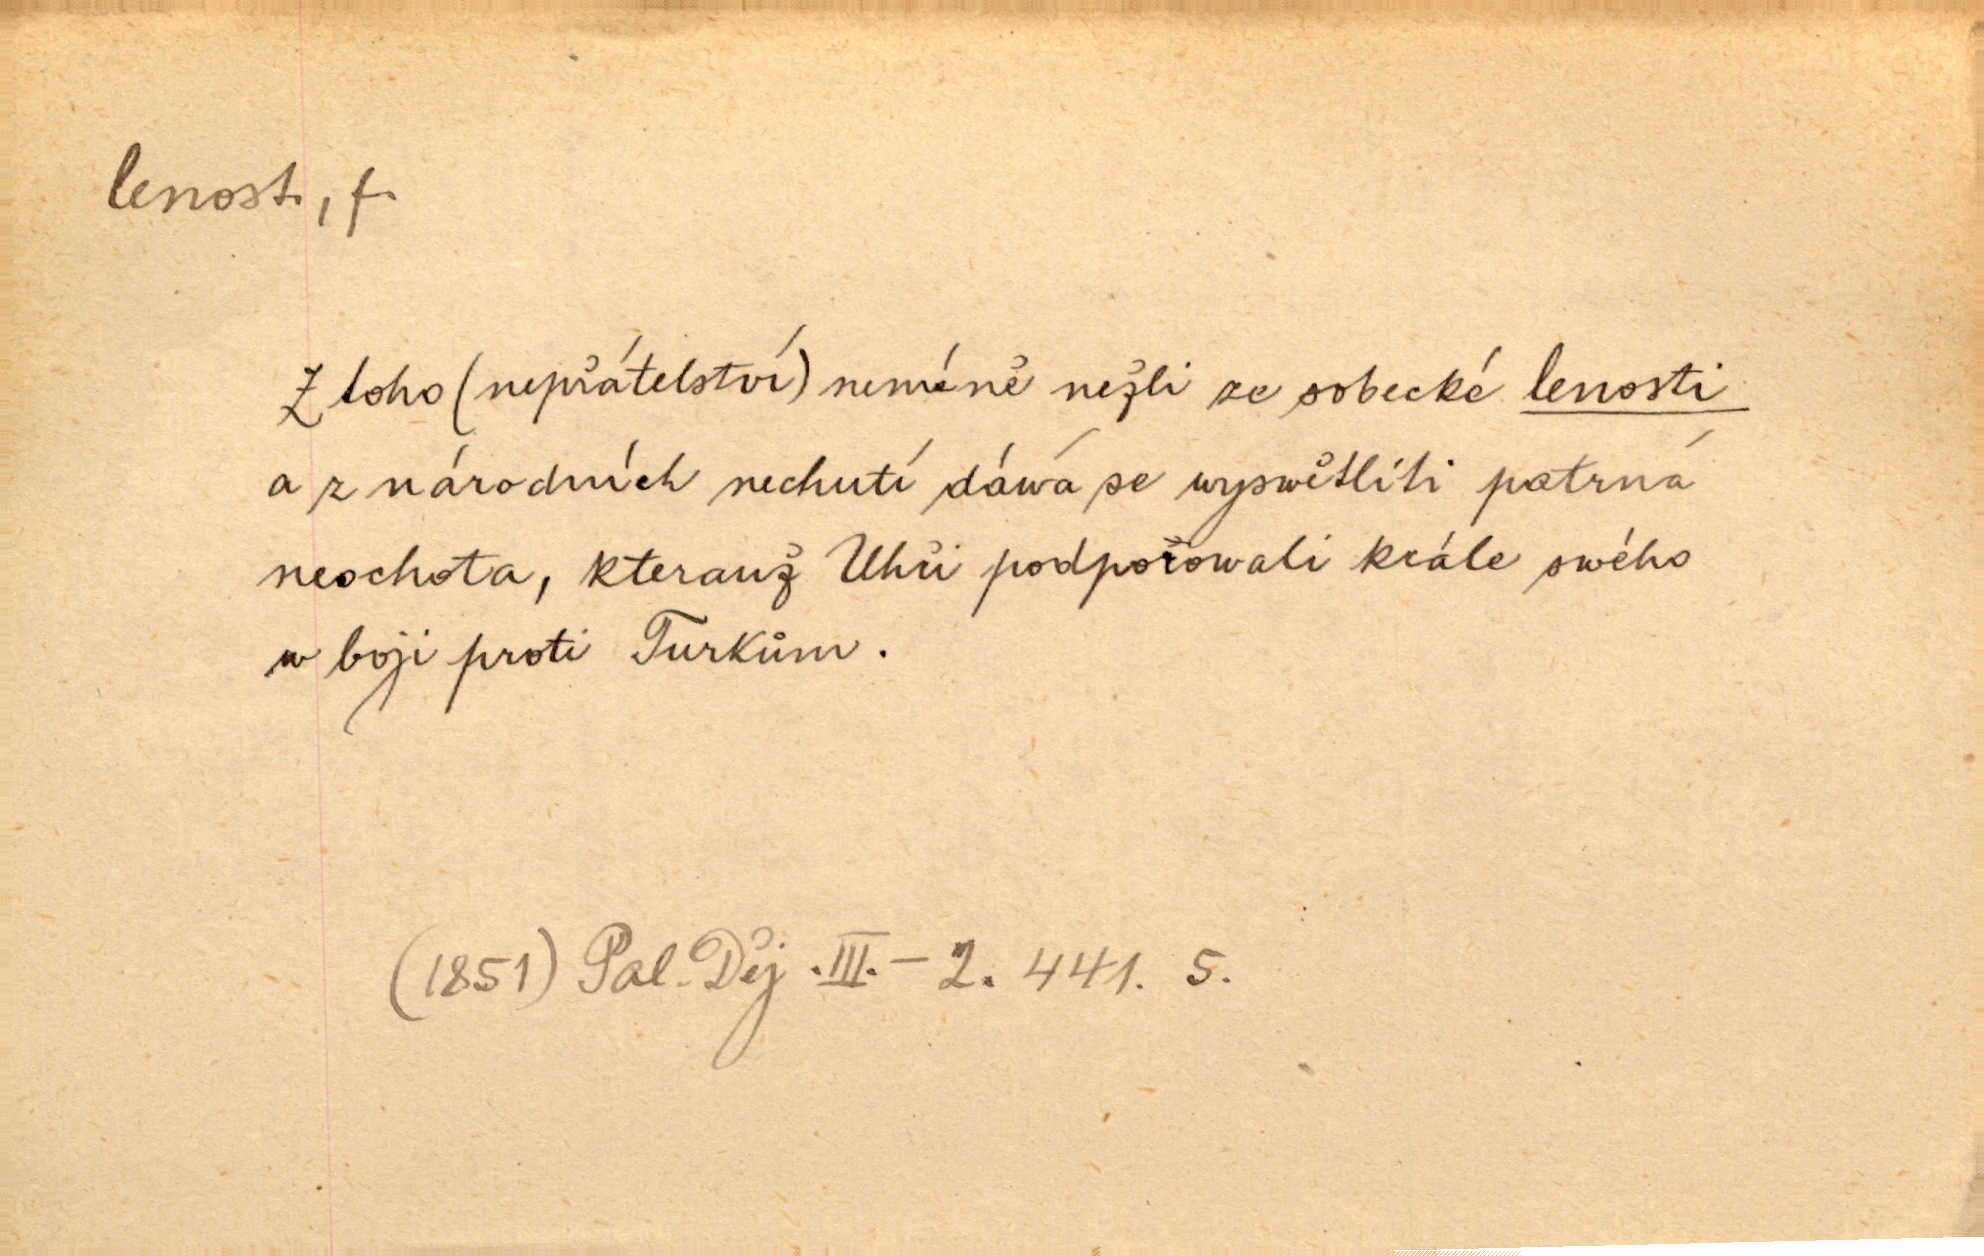 lenost, f.
Z toho (nepřátelství) neméně nežli ze sobecké lenosti
a z národních nechutí dáwá se wyswětliti patrná
neochota, kterauž Uhři podpořowali krále swého
w boji proti Turkům.
(1851) Pal. Děj. III. – 2. 441. 5.